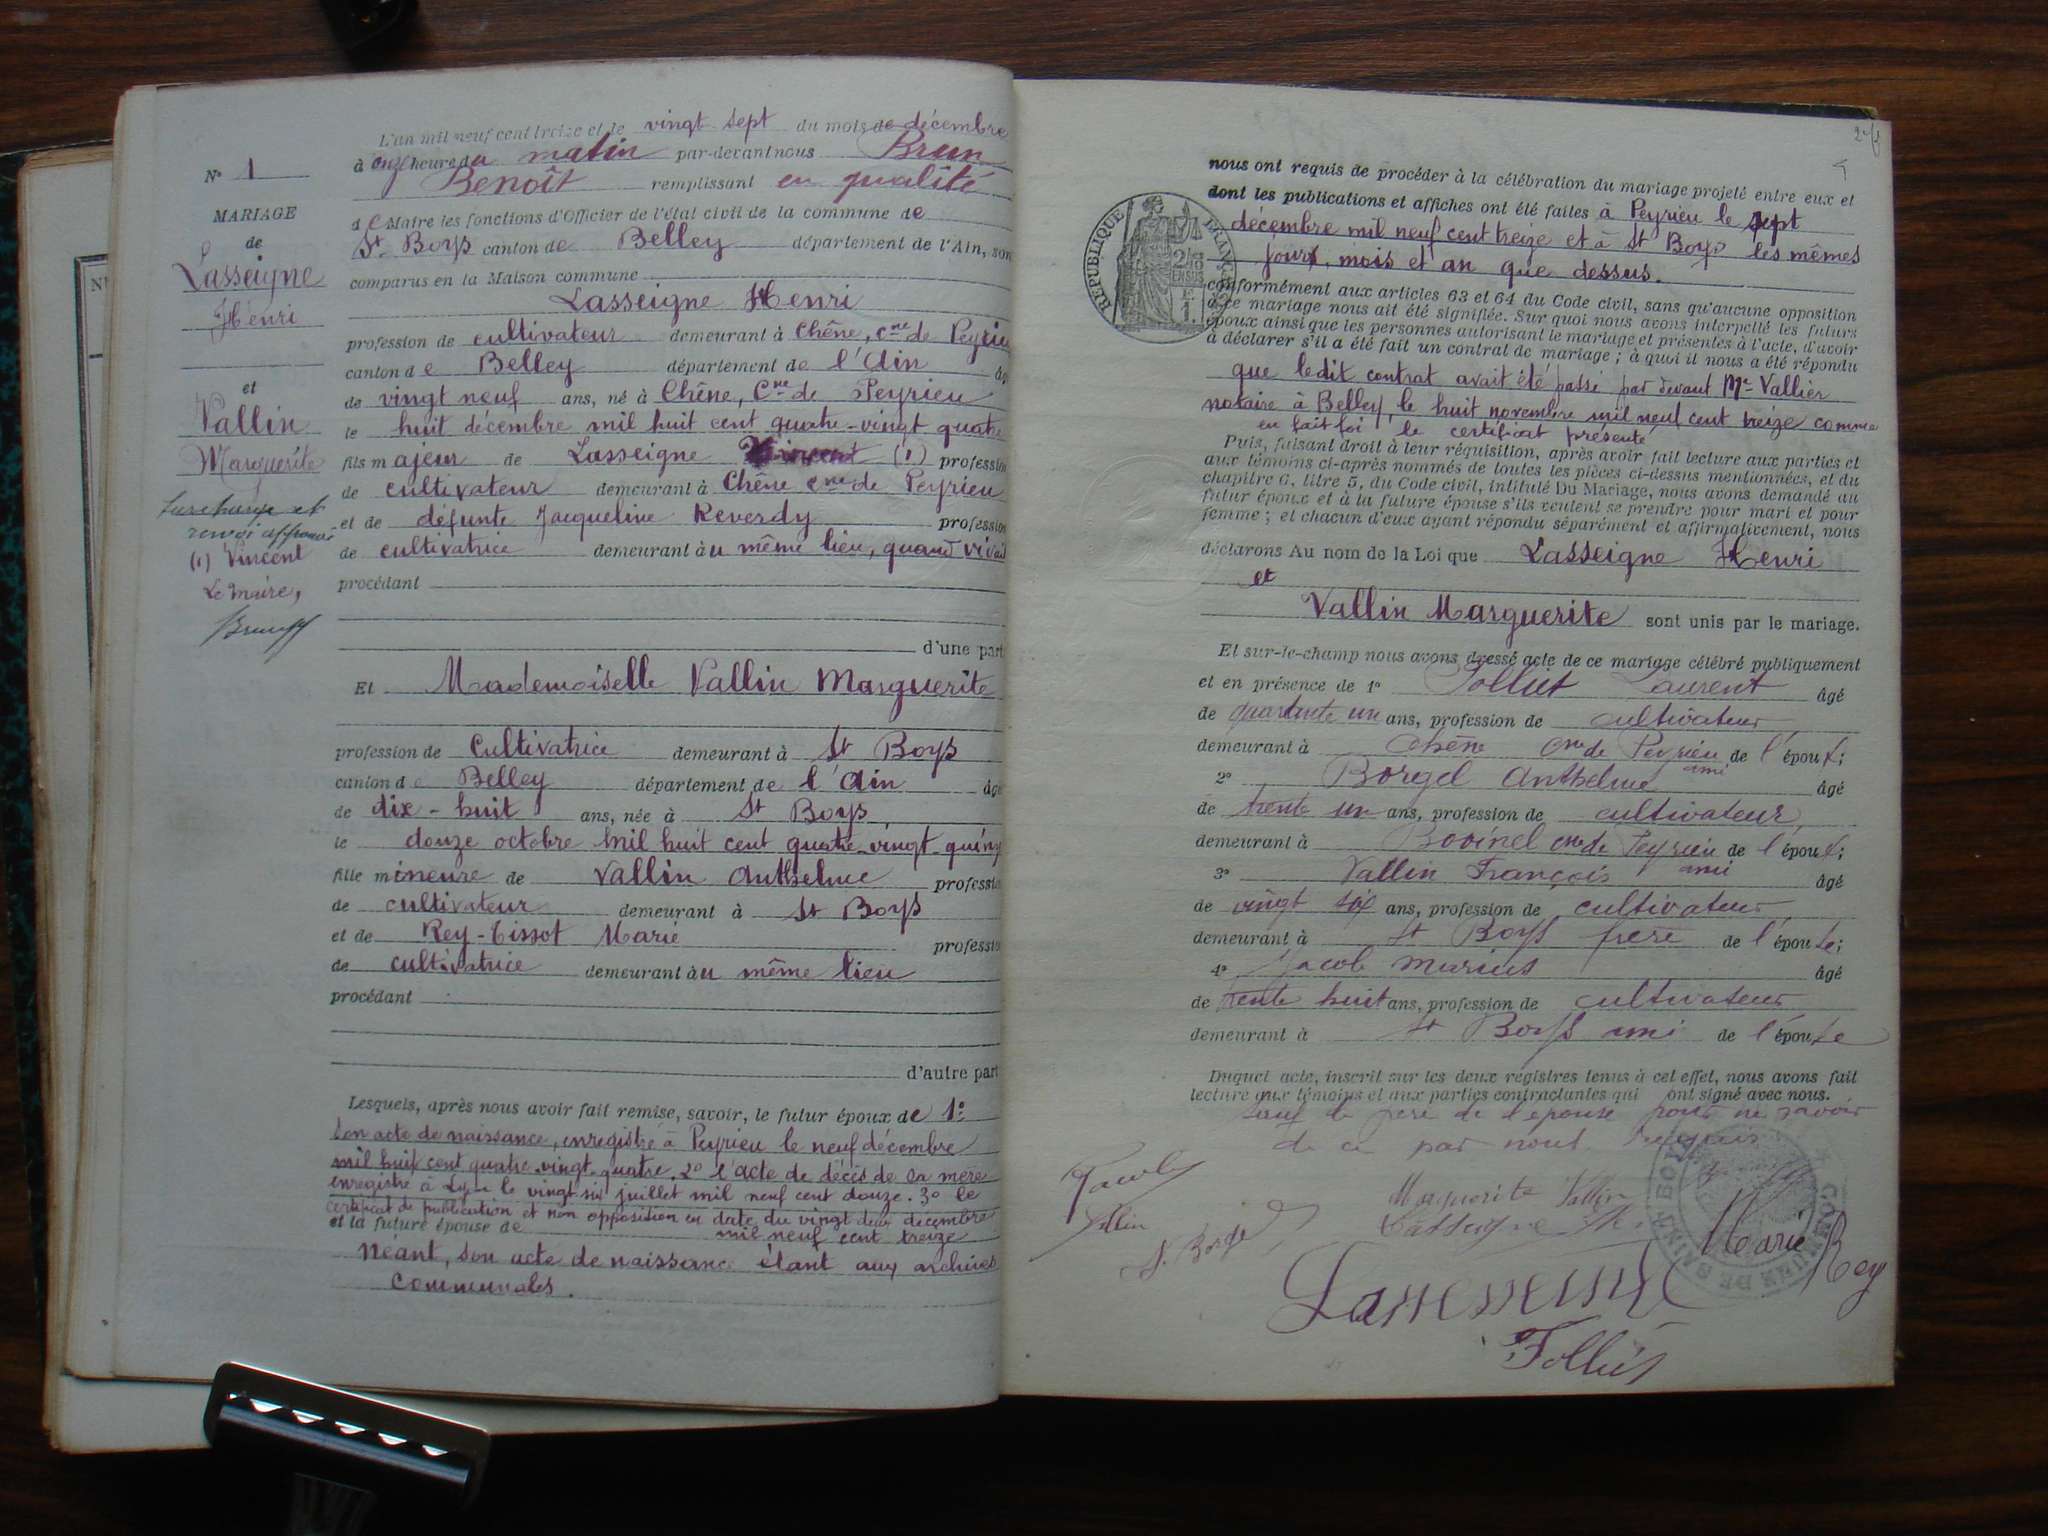 N° 1
MARIAGE
de
Lasseigne
Henri
et
Vallin
Marguerite
Surcharge et
renvoi approuvé
(1) Vincent
Le Maire,
L'an mil neuf cent treize et le vingt sept du mois de décembre
à onze heure du matin par-devant nous Brun
Benoît remplissant en qualité
de Maire les fonctions d'Officier de l'état civil de la commune de
St Boys canton de Belley département de l'Ain, son
comparus en la Maison commune
Lasseigne Henri
profession de cultivateur demeurant à Chêne, Cne de Peyrieu
canton de Belley département de l'Ain âgé
de vingt neuf ans, né à Chêne, Cne de Peyrieu
le huit décembre mil huit cent quatre-vingt quatre
fils majeur de Lasseigne Vincent (1) profession
de cultivateur demeurant à Chêne Cne de Peyrieu
et de défunte Jacqueline Reverdy profession
de cultivatrice demeurant au même lieu, quand vivait
procédant
d'une part
Et Mademoiselle Vallin Marguerite
profession de Cultivatrice demeurant à St Boys
canton de Belley département de l'Ain âgé
de dix-huit ans, née à St Boys
le douze octobre mil huit cent quatre-vingt-quinz
fille mineure de Vallin Anthelme profession
de cultivateur demeurant à St Boys
et de Rey-Tissot Marie profession
de cultivatrice demeurant au même lieu
procédant
d'autre part
Lesquels, après nous avoir fait remise, savoir, le futur époux de 1°
Son acte de naissance, enregistré à Peyrieu le neuf décembre
mil huit cent quatre-vingt-quatre. 2° l'acte de décès de sa mère
enregistré à Lyon le vingt six juillet mil neuf cent douze. 3° le
certificat de publication et non opposition en date du vingt deux décembre
et la future épouse de mil neuf cent treize
Néant, son acte de naissance étant aux archives
communales.
nous ont requis de procéder à la célébration du mariage projeté entre eux et
dont les publications et affiches ont été faites à Peyrieu le sept
décembre mil neuf cent treize et à St Boys les mêmes
jours, mois et an que dessus.
RÉPUBLIQUE FRANÇAISE
conformément aux articles 63 et 64 du Code civil, sans qu'aucune opposition
à ce mariage nous ait été signifiée. Sur quoi nous avons interpellé les futurs
époux ainsi que les personnes autorisant le mariage et présentes à l'acte, d'avoir
à déclarer s'il a été fait un contrat de mariage ; à quoi il nous a été répondu
que ledit contrat avait été passé par devant Me Vallier
notaire à Belley, le huit novembre mil neuf cent treize comme
en fait foi le certificat présenté
Puis, faisant droit à leur réquisition, après avoir fait lecture aux parties et
aux témoins ci-après nommés de toutes les pièces ci-dessus mentionnées, et du
chapitre 6, titre 5, du Code civil, intitulé Du Mariage, nous avons demandé au
futur époux et à la future épouse s'ils veulent se prendre pour mari et pour
femme ; et chacun d'eux ayant répondu séparément et affirmativement, nous
déclarons Au nom de la Loi que Lasseigne Henri
et
Vallin Marguerite sont unis par le mariage.
Et sur-le-champ nous avons dressé acte de ce mariage célébré publiquement
et en présence de 1° Folliet Laurent âgé
de quarante un ans, profession de cultivateur
demeurant à Chêne Cne de Peyrieu de l'époux;
ami
2° Borgel Anthelme âgé
de trente un ans, profession de cultivateur
demeurant à Bovinel Cne de Peyrieu de l'époux;
ami
3° Vallin François âgé
de vingt six ans, profession de cultivateur
demeurant à St Boys frère de l'épouse;
4° Jacob Marius âgé
de trente huit ans, profession de cultivateur
demeurant à St Boys ami de l'épouse
Duquel acte, inscrit sur les deux registres tenus à cet effet, nous avons fait
lecture aux témoins et aux parties contractantes qui ont signé avec nous.
sauf le père de l'épouse pour ne savoir
de ce par nous requis
Jacob
Vallin
Marguerite Vallin
Lasseigne H.
Marie Rey
Folliet